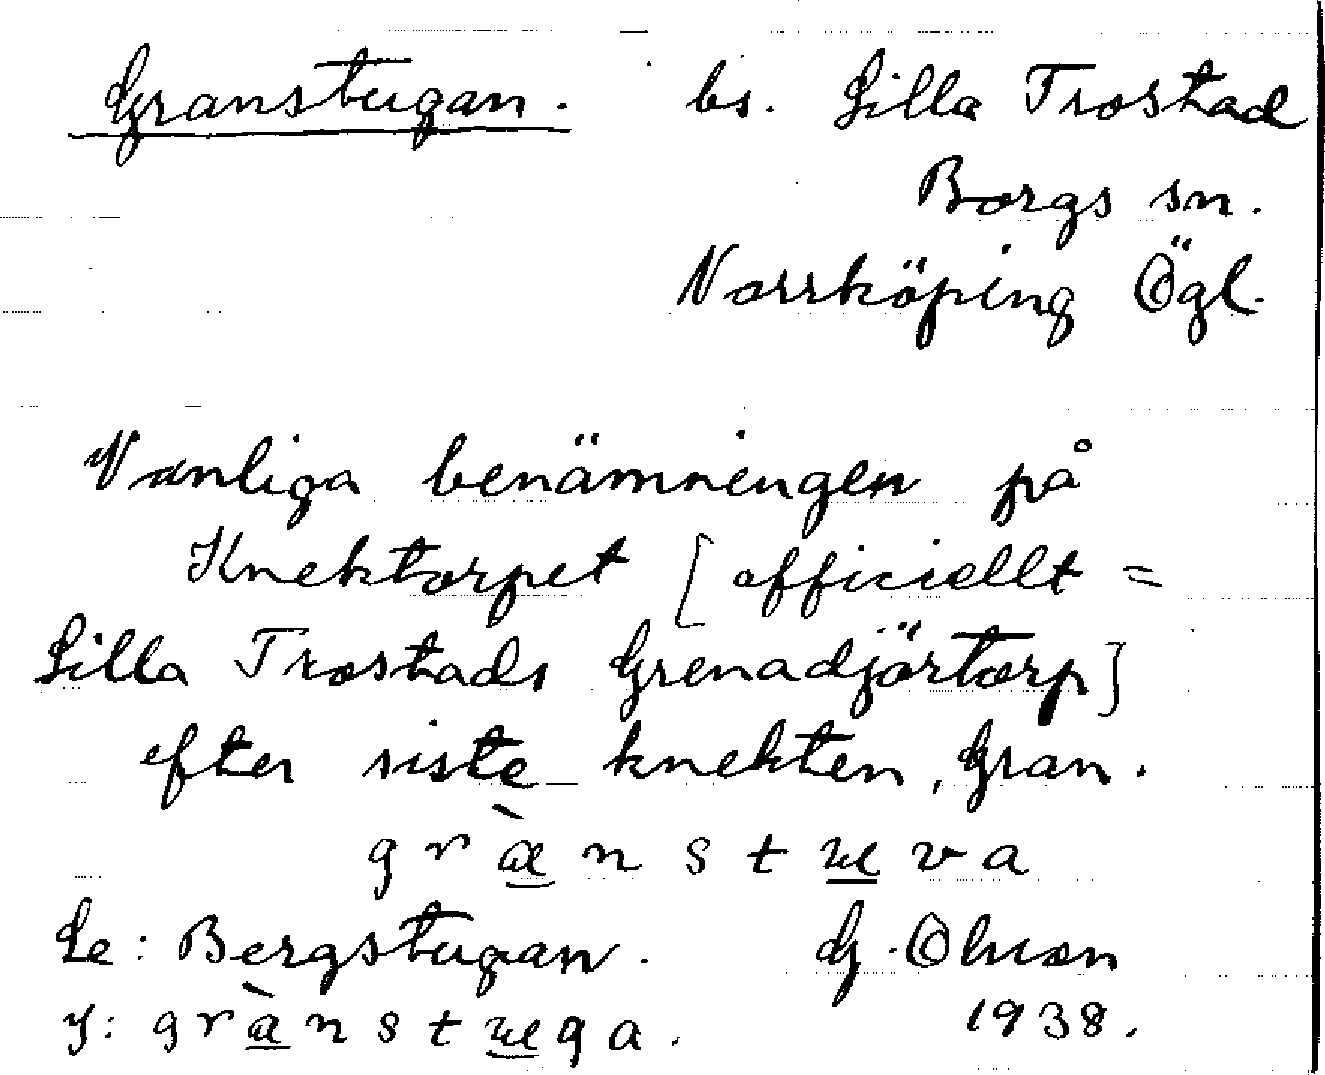 Granstugan. bs. Lilla Trostad
Borgs sn.
Norrköping Ögl.
Vanliga benämningen på
Knektorpet [officiellt =
Lilla Trostads Grenadjörtorp]
efter siste knekten, Gran.
grànstuva
Se: Bergstugan. G. Olsson
y: grànstuga. 1938.